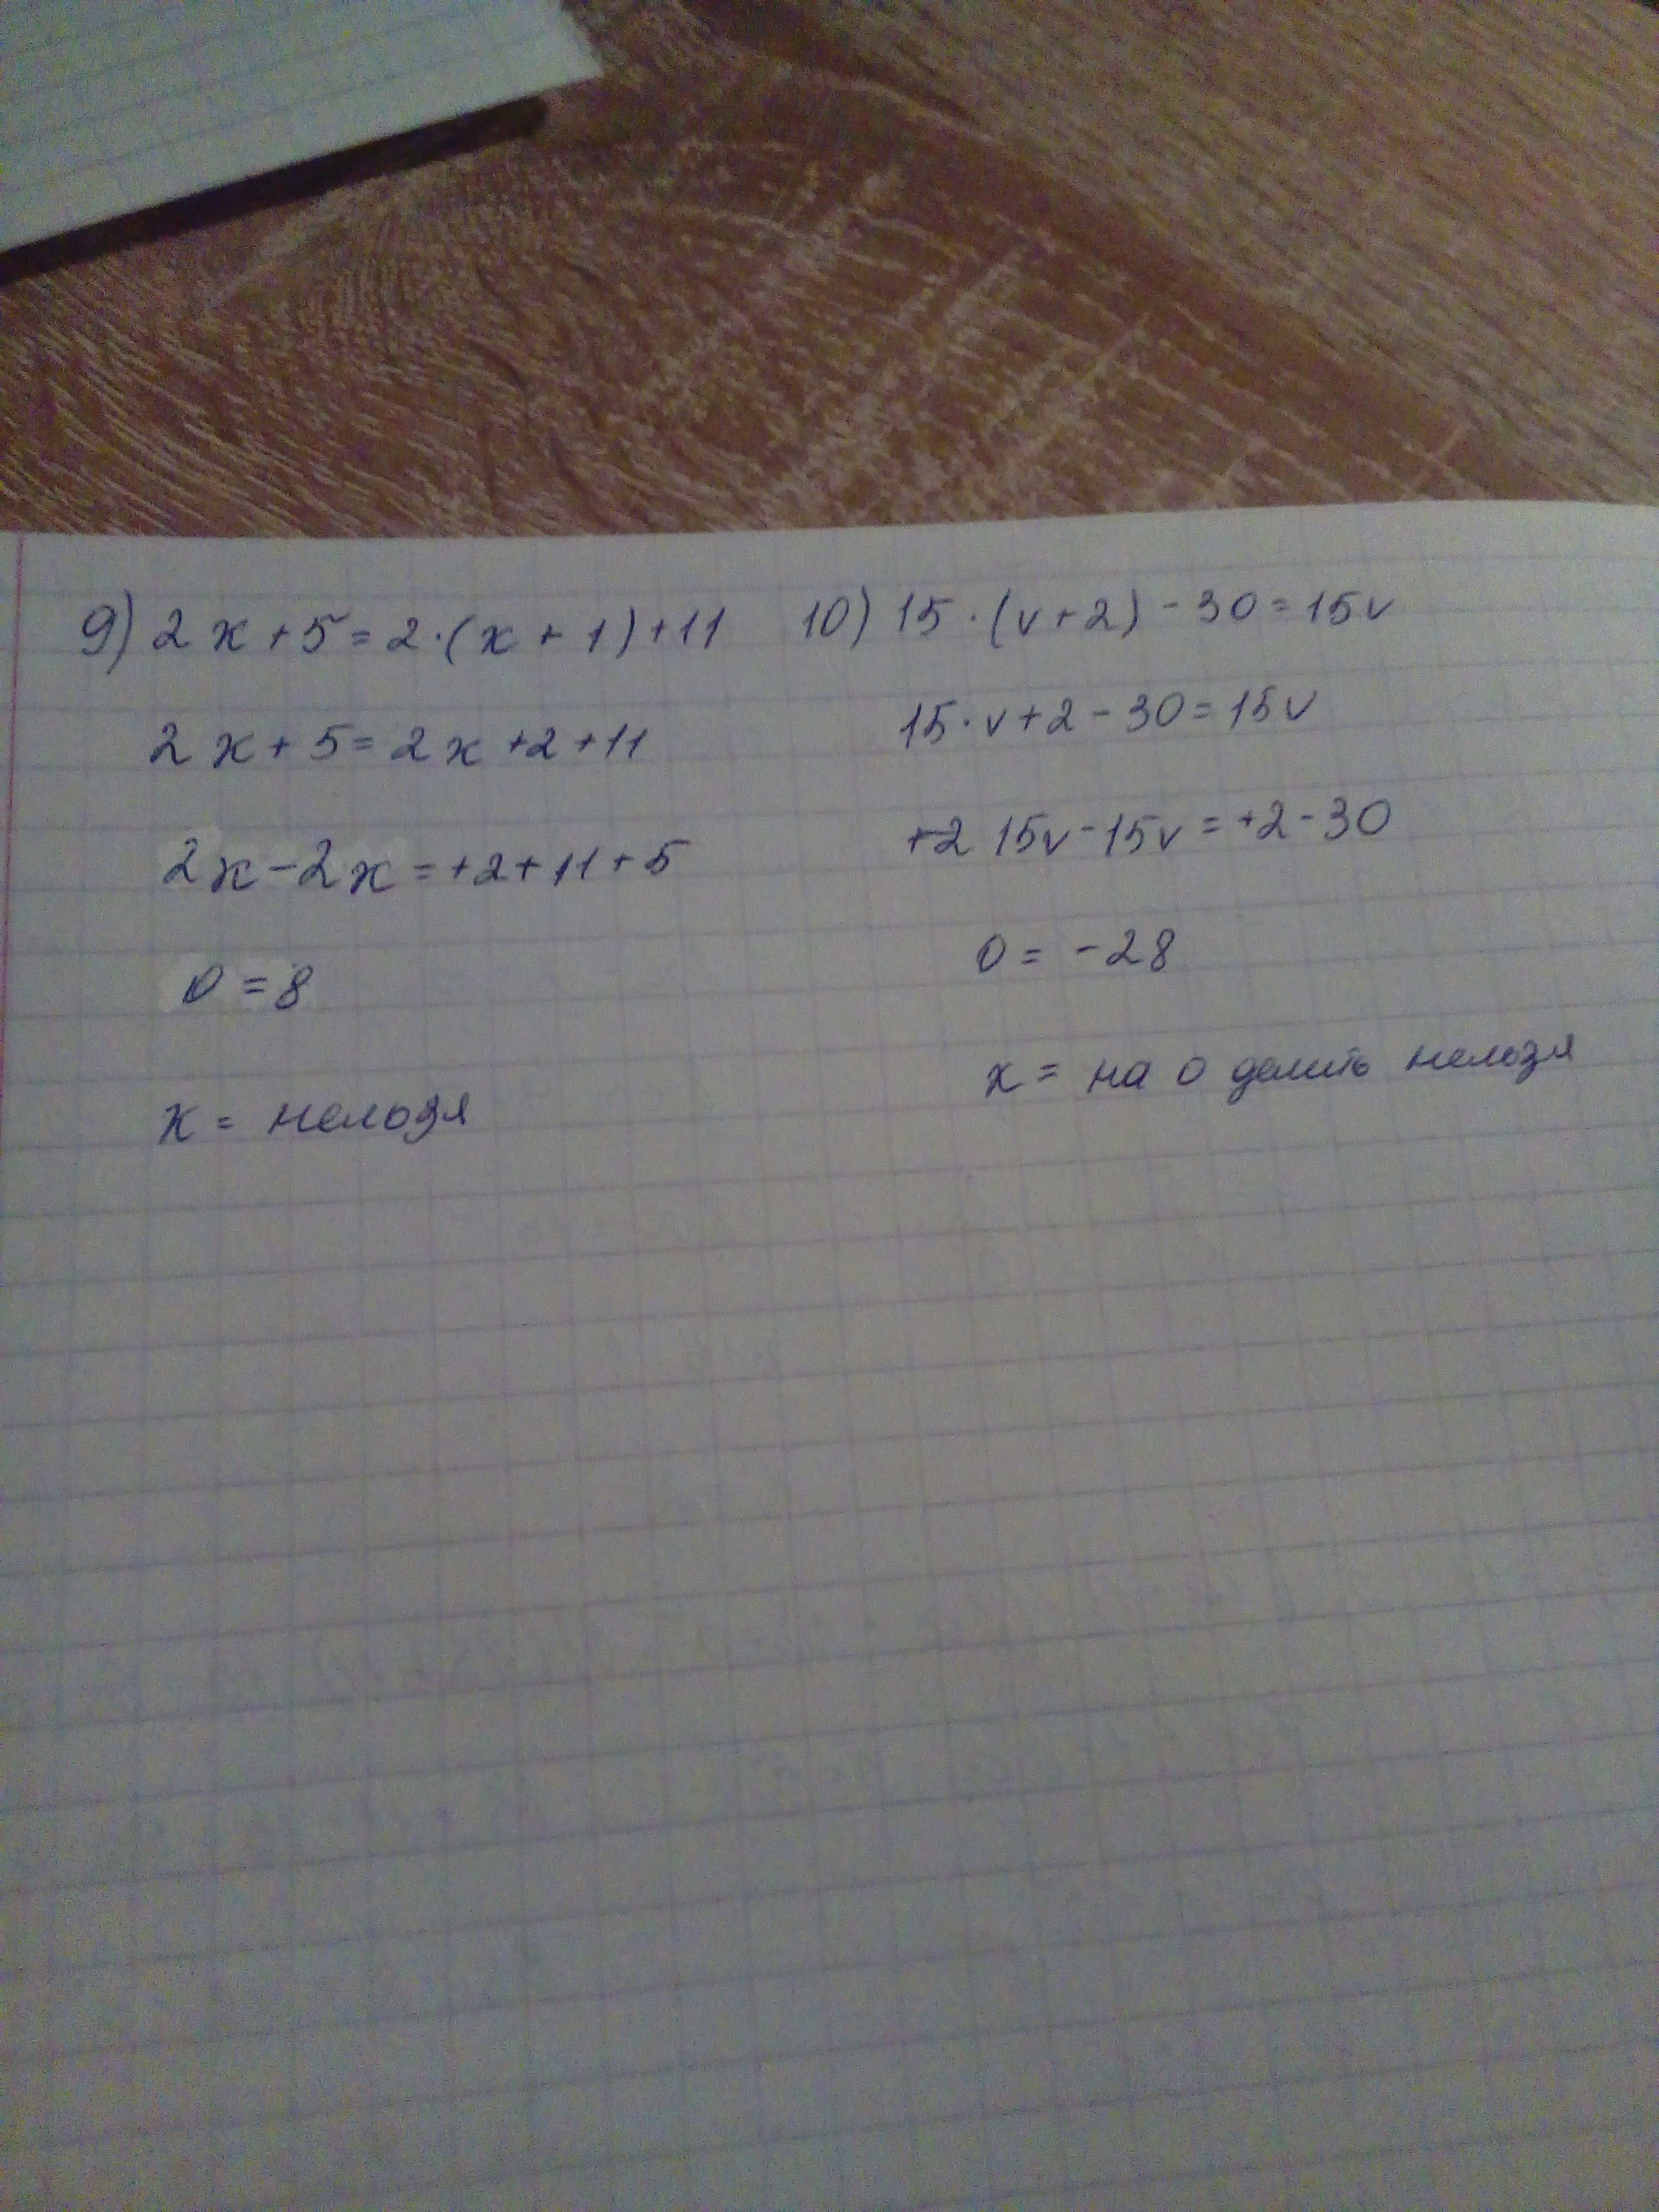 9) 2x+5=2·(x+1)+11
2x+5=2x+2+11
2x-2x=+2+11+5
0=8
x= нельзя
10) 15·(v+2)-30=15v
15·v+2-30=15v
+2 15v-15v=+2-30
0=-28
x= на 0 делить нельзя